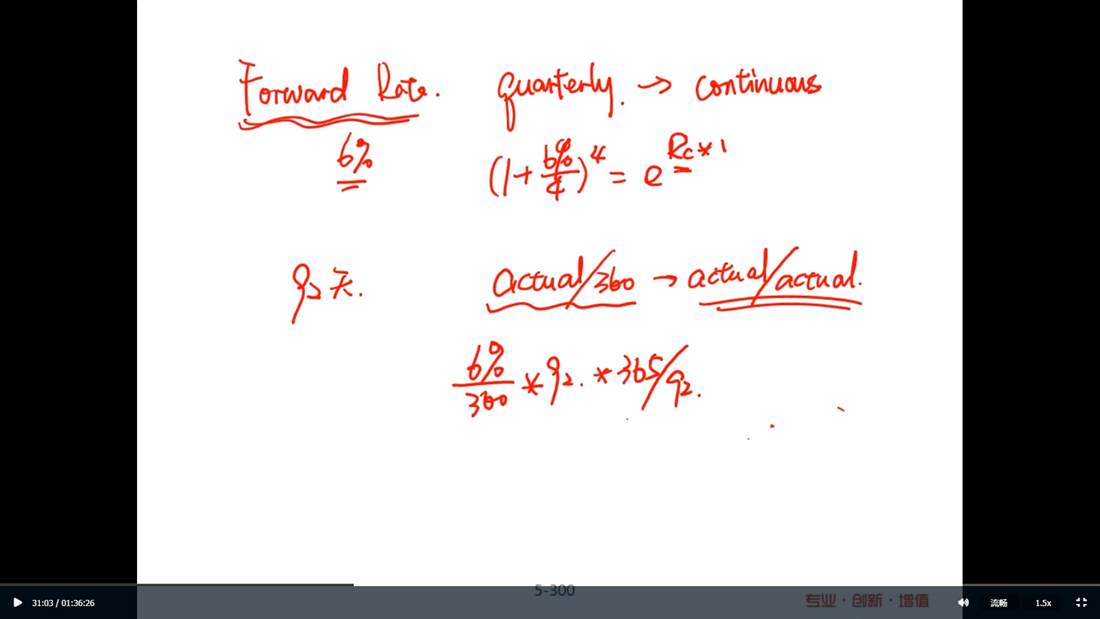 Forward Rate. quarterly. → continuous
6% (1+6%/4)^4 = e^Rc*1
92天. actual/360 → actual/actual.
6%/360 * 92. * 365/92.
5-300
31:03 / 01:36:26 专业·创新·增值 流畅 1.5x